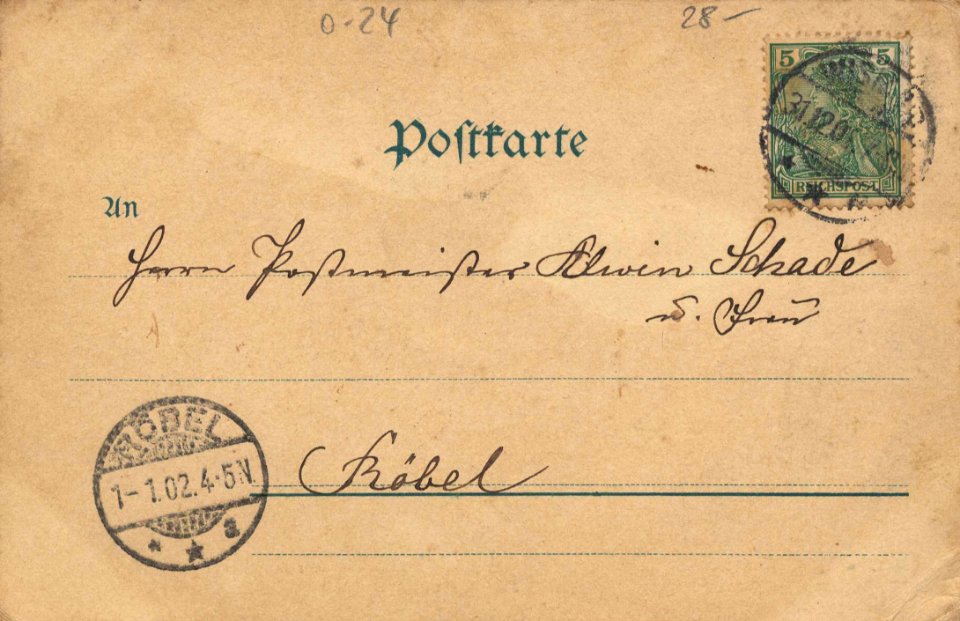 0-24 28-
5 5
31.12.0
REICHSPOST
Postkarte
An
Herrn Postmeister Alwin Schade
u. Frau
Röbel
RÖBEL
1-1.02.4-5N
* * a